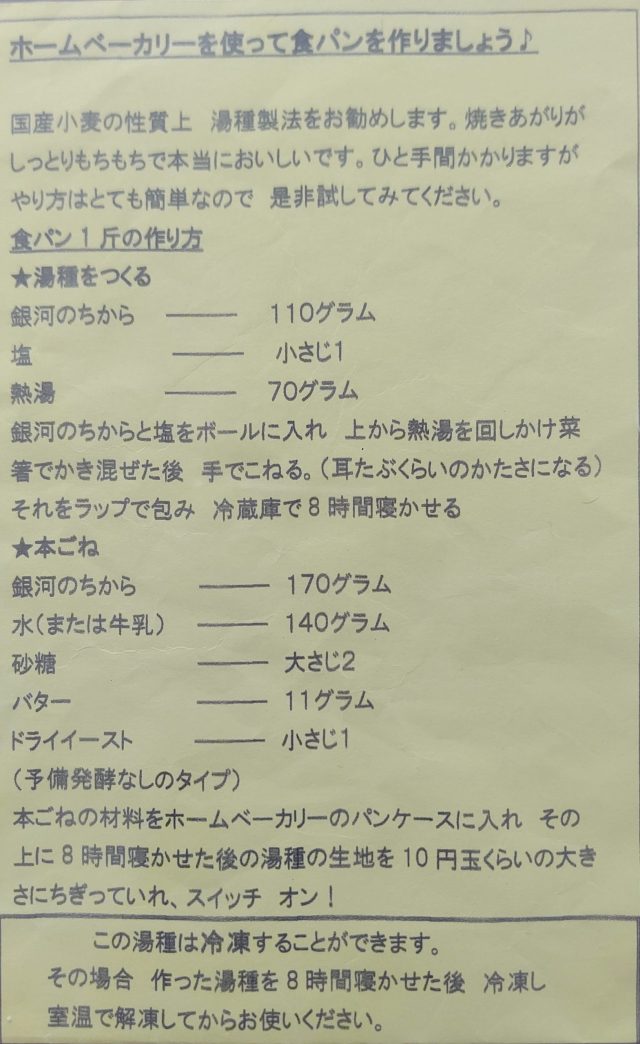 ホームベーカリーを使って食パンを作りましょう♪
国産小麦の性質上　湯種製法をお勧めします。焼きあがりが
しっとりもちもちで本当においしいです。ひと手間かかりますが
やり方はとても簡単なので　是非試してみてください。
食パン１斤の作り方
★湯種をつくる
銀河のちから　―――　110グラム
塩　―――　小さじ1
熱湯　―――　70グラム
銀河のちからと塩をボールに入れ　上から熱湯を回しかけ菜
箸でかき混ぜた後　手でこねる。（耳たぶくらいのかたさになる）
それをラップで包み　冷蔵庫で８時間寝かせる
★本ごね
銀河のちから　―――　170グラム
水（または牛乳）　―――　140グラム
砂糖　―――　大さじ2
バター　―――　11グラム
ドライイースト　―――　小さじ1
（予備発酵なしのタイプ）
本ごねの材料をホームベーカリーのパンケースに入れ　その
上に８時間寝かせた後の湯種の生地を10円玉くらいの大き
さにちぎっていれ、スイッチ　オン！
この湯種は冷凍することができます。
その場合　作った湯種を８時間寝かせた後　冷凍し
室温で解凍してからお使いください。